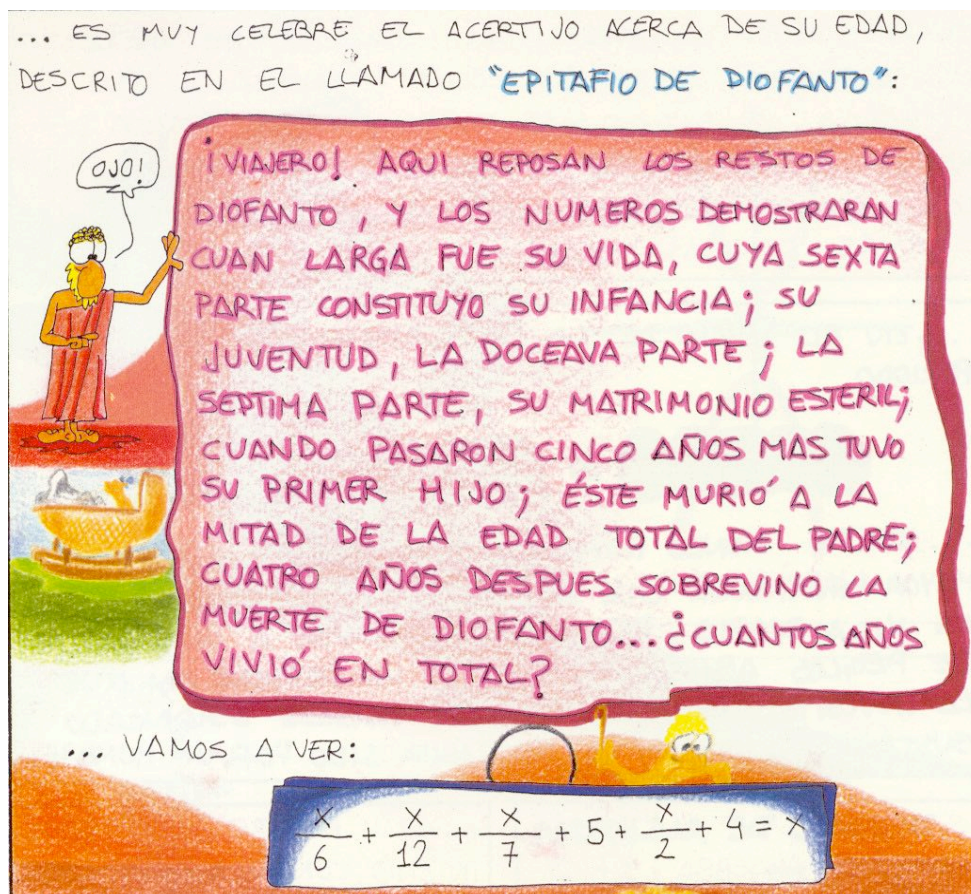 ... ES MUY CELEBRE EL ACERTIJO ACERCA DE SU EDAD,
DESCRITO EN EL LLAMADO "EPITAFIO DE DIOFANTO":
OJO!
¡VIAJERO! AQUI REPOSAN LOS RESTOS DE
DIOFANTO, Y LOS NUMEROS DEMOSTRARAN
CUAN LARGA FUE SU VIDA, CUYA SEXTA
PARTE CONSTITUYO SU INFANCIA; SU
JUVENTUD, LA DOCEAVA PARTE; LA
SEPTIMA PARTE, SU MATRIMONIO ESTERIL;
CUANDO PASARON CINCO AÑOS MAS TUVO
SU PRIMER HIJO; ÉSTE MURIÓ A LA
MITAD DE LA EDAD TOTAL DEL PADRE;
CUATRO AÑOS DESPUES SOBREVINO LA
MUERTE DE DIOFANTO... ¿CUANTOS AÑOS
VIVIÓ EN TOTAL?
... VAMOS A VER:
x/6 + x/12 + x/7 + 5 + x/2 + 4 = x